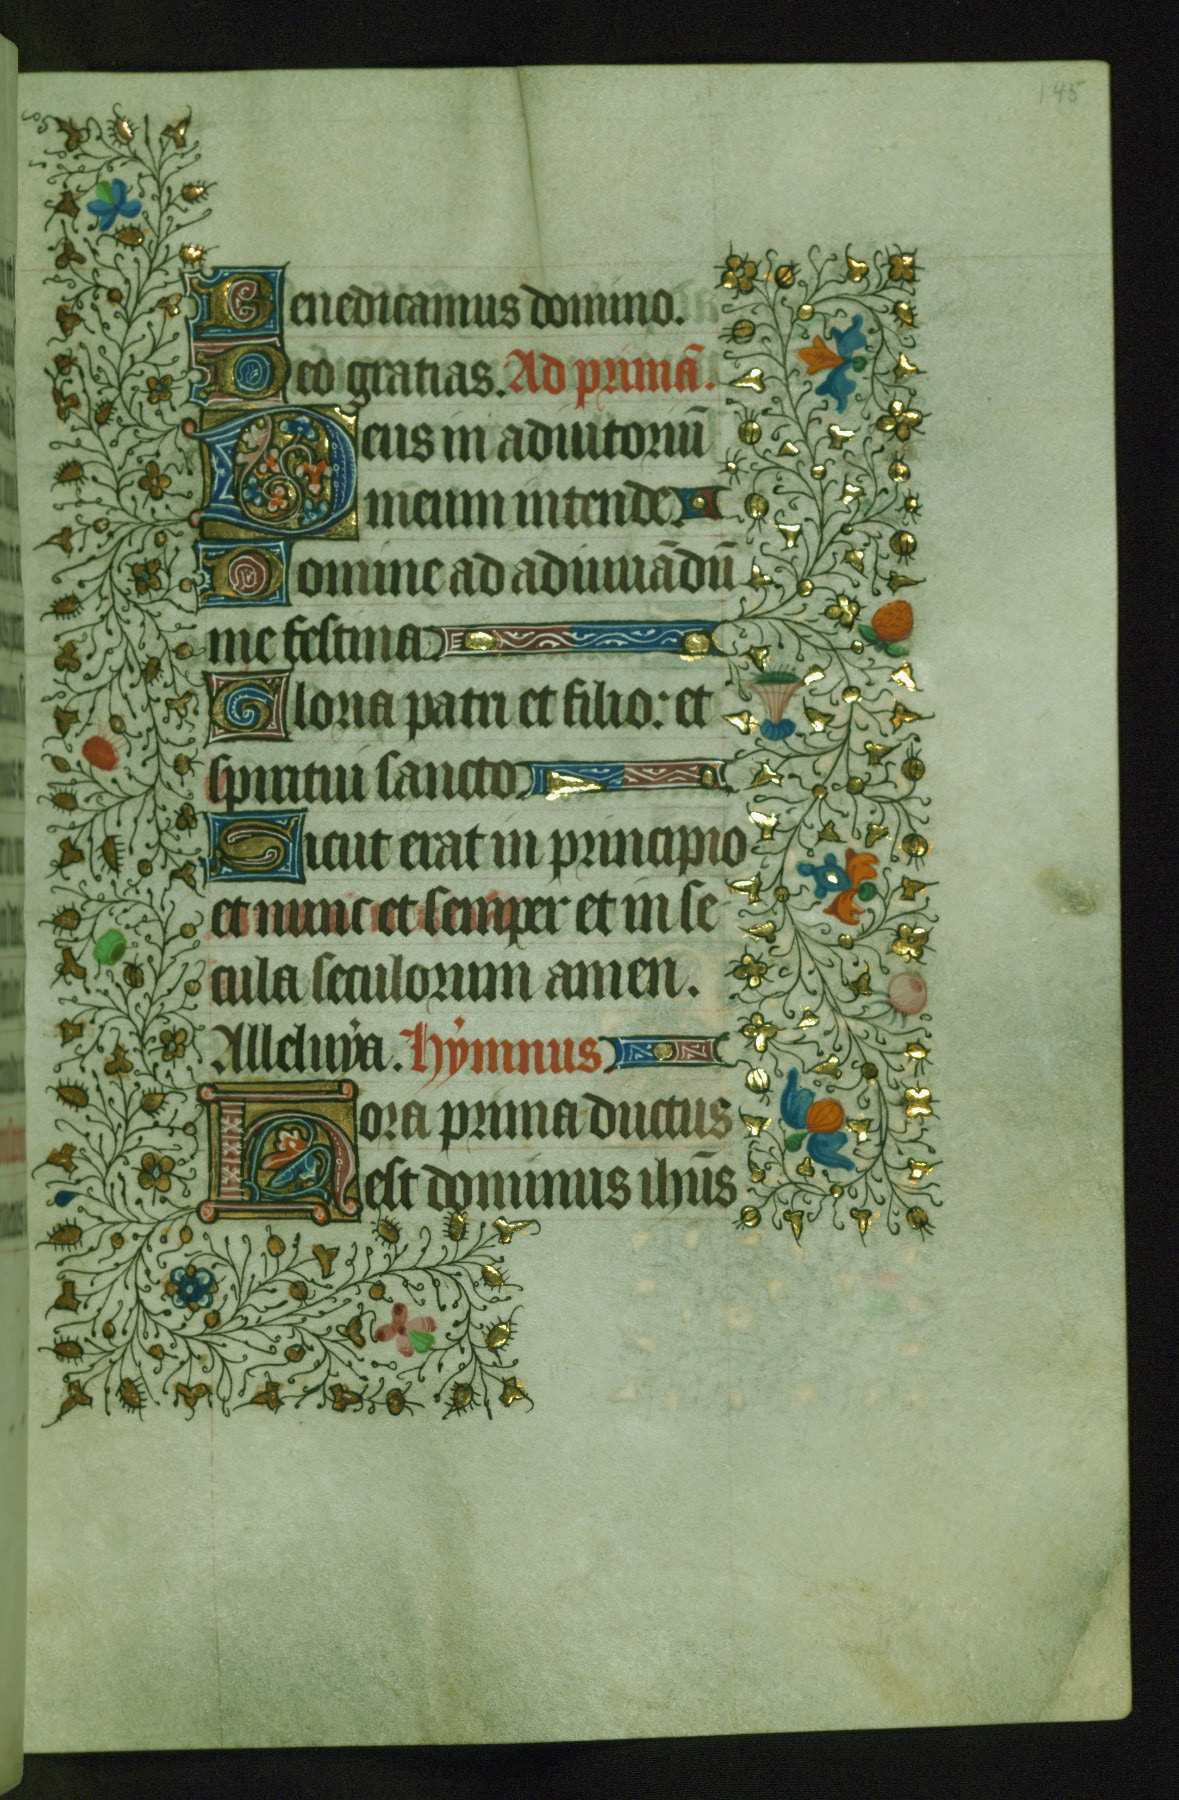 145
Benedicamus domino.
Deo gratias. Ad primā.
Deus in adiutoriū
meum intende
Domine ad adiuuādū
me festina
Gloria patri et filio: et
spiritui sancto
Sicut erat in principio
et nunc et semper et in se
cula seculorum amen.
Alleluya. Hymnus
Hora prima ductus
est dominus ihūs